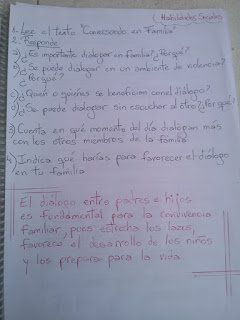 (Habilidades Sociales
1. Lee el texto "Conversando en Familia"
2. Responde
a) ¿Es importante dialogar en familia? ¿Porqué?
b) ¿Se puede dialogar en un ambiente de violencia?
¿Porqué?
c) ¿Quién o quienes se benefician con el diálogo?
d) ¿Se puede dialogar sin escuchar al otro? ¿Por qué?
3) Cuenta en qué momento del día dialogan más
con los otros miembros de la familia
4) Indica qué harías para favorecer el diálogo
en tu familia
El diálogo entre padres e hijos
es fundamental para la convivencia
familiar, pues estrecha los lazos,
favorece el desarrollo de los niños
y los prepara para la vida.